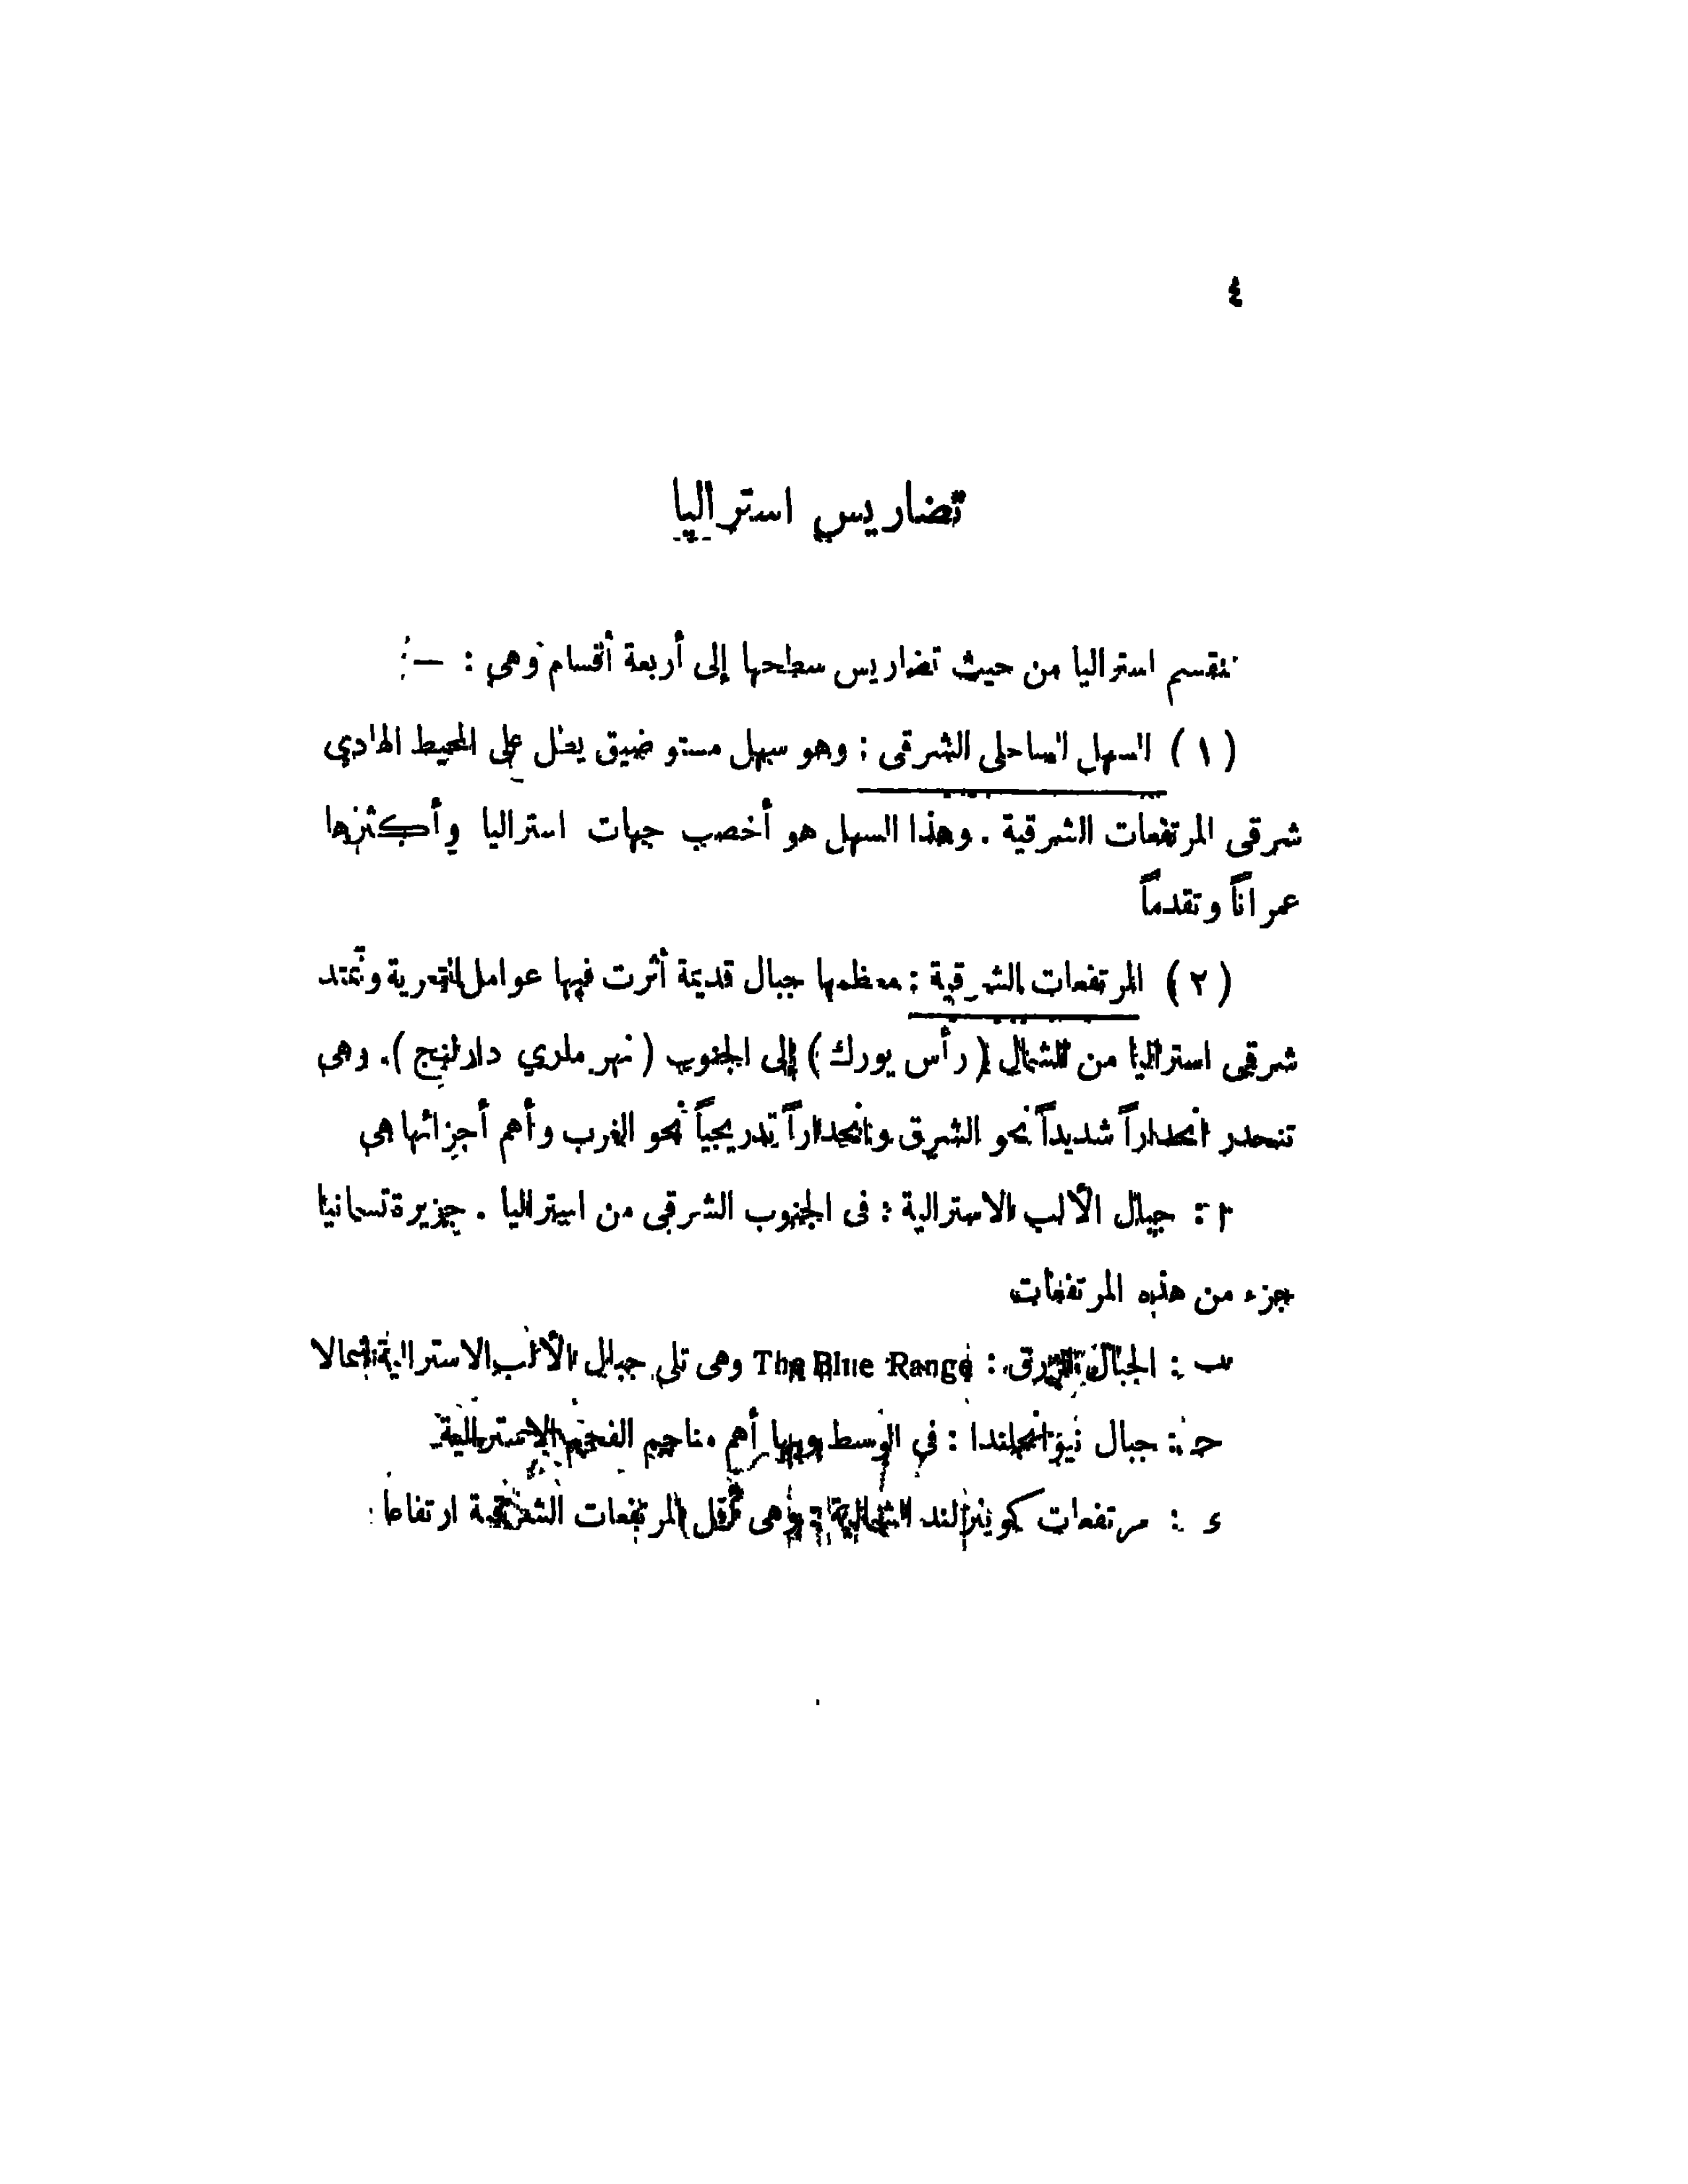 ٤
تضاريس استراليا
تنقسم استراليا من حيث تضاريس سطحها إلى أربعة أقسام وهي : —
( ١ ) السهل الساحلى الشرقى : وهو سهل مستو ضيق يطل على المحيط الهادي
شرقى المرتفعات الشرقية . وهذا السهل هو أخصب جهات استراليا وأكثرها
عمراناً وتقدماً
( ٢ ) المرتفعات الشرقية : معظمها جبال قديمة أثرت فيها عوامل التعرية وتمتد
شرقى استراليا من الشمال ( رأس يورك ) إلى الجنوب ( نهر ملري دارلنج ) . وهى
تنحدر انحداراً شديداً نحو الشرق وانحداراً تدريجياً نحو الغرب وأهم أجزائها هى
ا : جبال الألب الاسترالية : فى الجنوب الشرقى من استراليا . جزيرة تسمانيا
جزء من هذه المرتفعات
ب : الجبال الزرق : The Blue Range وهى تلى جبال الألب الاسترالية شمالا
ح : جبال نيو انجلندا : في الوسط وبها أهم مناجم الفحم الاسترالية
د : مرتفعات كوينزلند الشمالية : وهى أقل المرتفعات الشرقية ارتفاعا